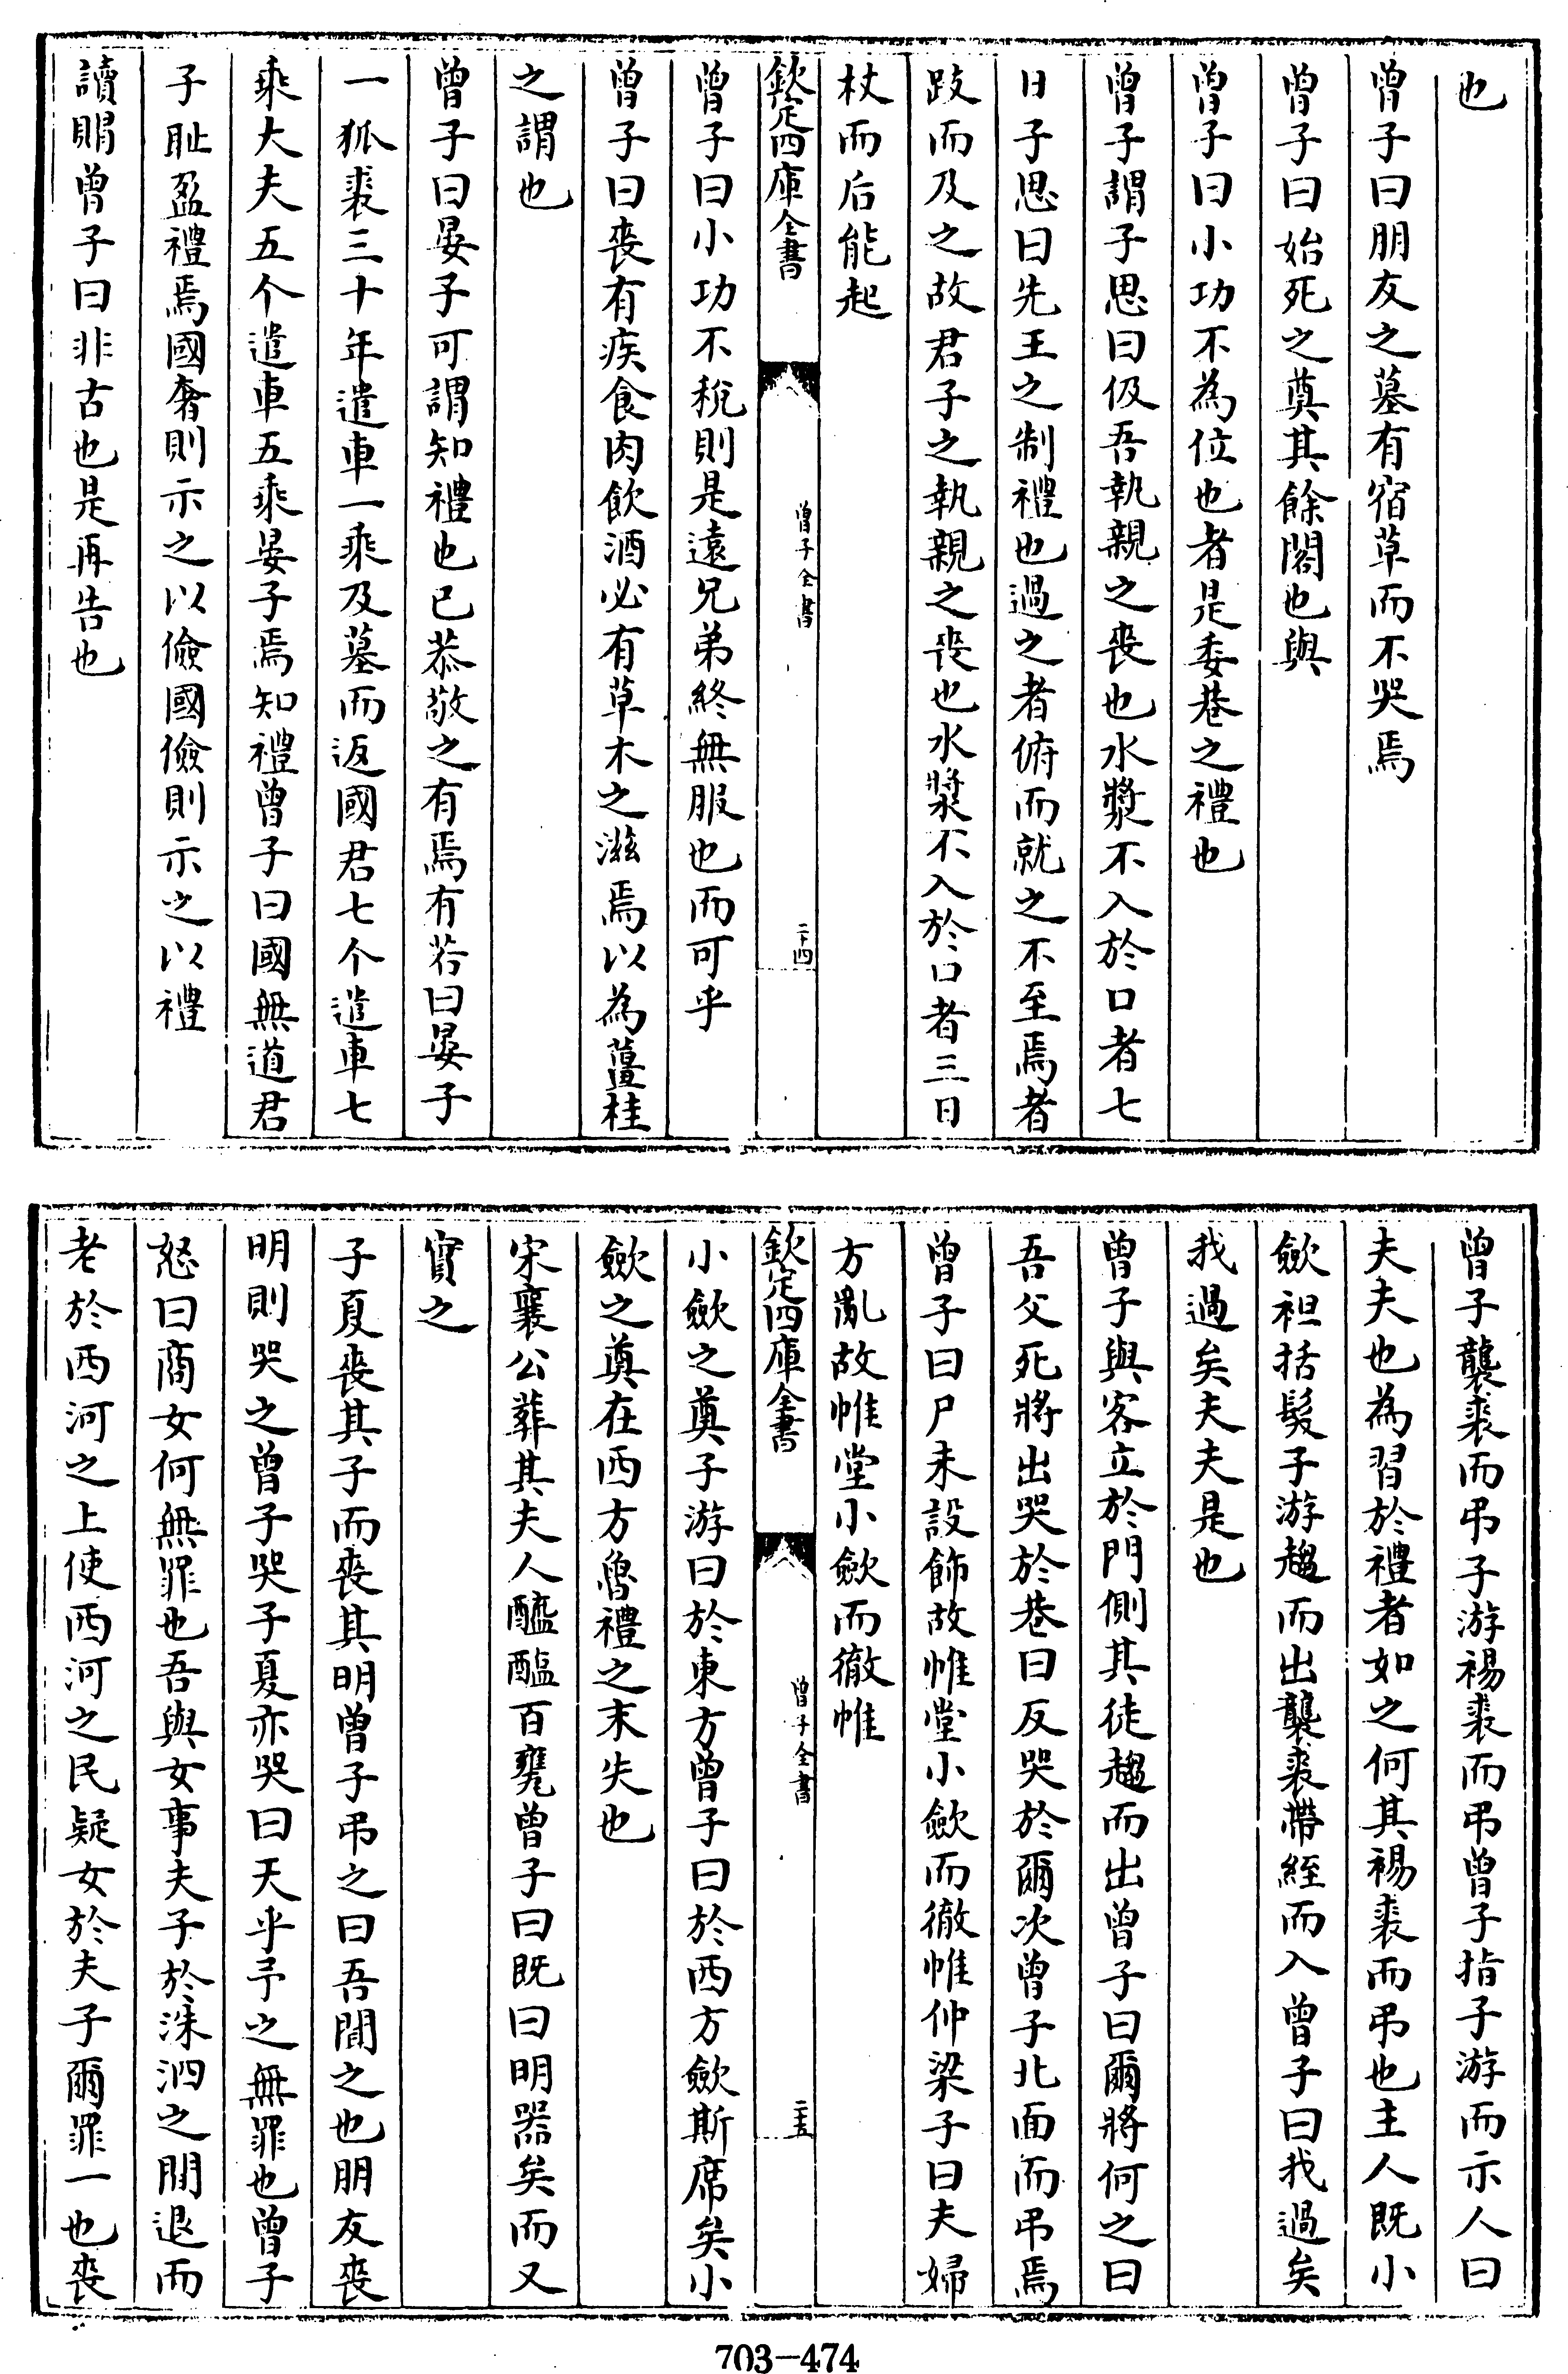 也
曾子曰朋友之墓有宿草而不哭焉
曾子曰始死之奠其餘閣也與
曾子曰小功不為位也者是委巷之禮也
曾子謂子思曰伋吾執親之喪也水漿不入於口者七
日子思曰先王之制禮也過之者俯而就之不至焉者
跂而及之故君子之執親之喪也水漿不入於口者三日
杖而后能起
欽定四庫全書
曾子全書
二十四
曾子曰小功不稅則是遠兄弟終無服也而可乎
曾子曰喪有疾食肉飲酒必有草木之滋焉以為薑桂
之謂也
曾子曰晏子可謂知禮也已恭敬之有焉有若曰晏子
一狐裘三十年遣車一乘及墓而返國君七个遣車七
乘大夫五个遣車五乘晏子焉知禮曾子曰國無道君
子恥盈禮焉國奢則示之以儉國儉則示之以禮
讀賵曾子曰非古也是再告也
曾子襲裘而弔子游裼裘而弔曾子指子游而示人曰
夫夫也為習於禮者如之何其裼裘而弔也主人既小
歛袒括髮子游趨而出襲裘帶絰而入曾子曰我過矣
我過矣夫夫是也
曾子與客立於門側其徒趨而出曾子曰爾將何之曰
吾父死將出哭於巷曰反哭於爾次曾子北面而弔焉
曾子曰尸未設飾故帷堂小歛而徹帷仲梁子曰夫婦
方亂故帷堂小歛而徹帷
欽定四庫全書
曾子全書
二十五
小歛之奠子游曰於東方曾子曰於西方歛斯席矣小
歛之奠在西方魯禮之末失也
宋襄公葬其夫人醯醢百甕曾子曰既曰明器矣而又
實之
子夏喪其子而喪其明曾子弔之曰吾聞之也朋友喪
明則哭之曾子哭子夏亦哭曰天乎予之無罪也曾子
怒曰商女何無罪也吾與女事夫子於洙泗之間退而
老於西河之上使西河之民疑女於夫子爾罪一也喪
703-474